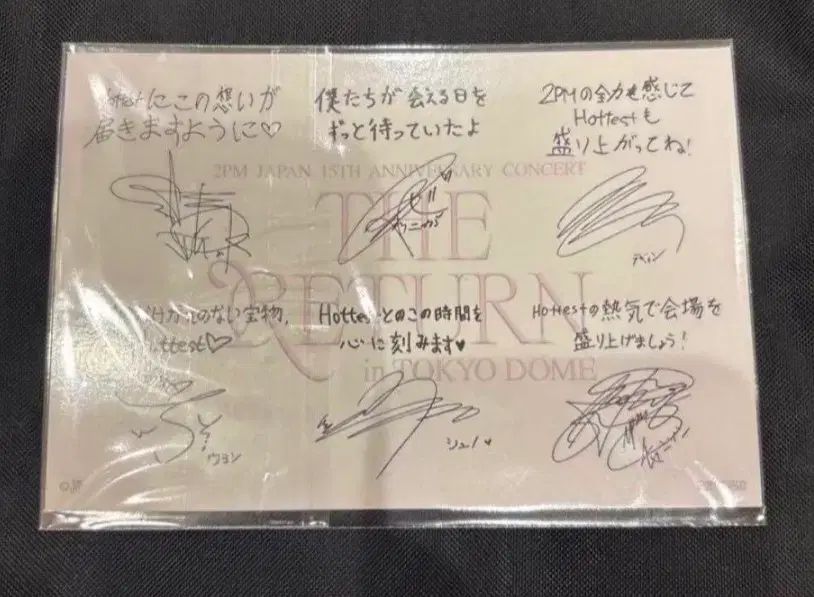 Hottestにこの想いが
届きますように♡
僕たちが会える日を
ずっと待っていたよ
2PMの全力を感じて
Hottestも
盛り上がってね!
2PM JAPAN 15TH ANNIVERSARY CONCERT
THE
RETURN
in TOKYO DOME
テギョン
けがれのない宝物、
ottest♡
ウヨン
Hottestとのこの時間を
心に刻みます♥
ジュノ
Hottestの熱気で会場を
盛り上げましょう!